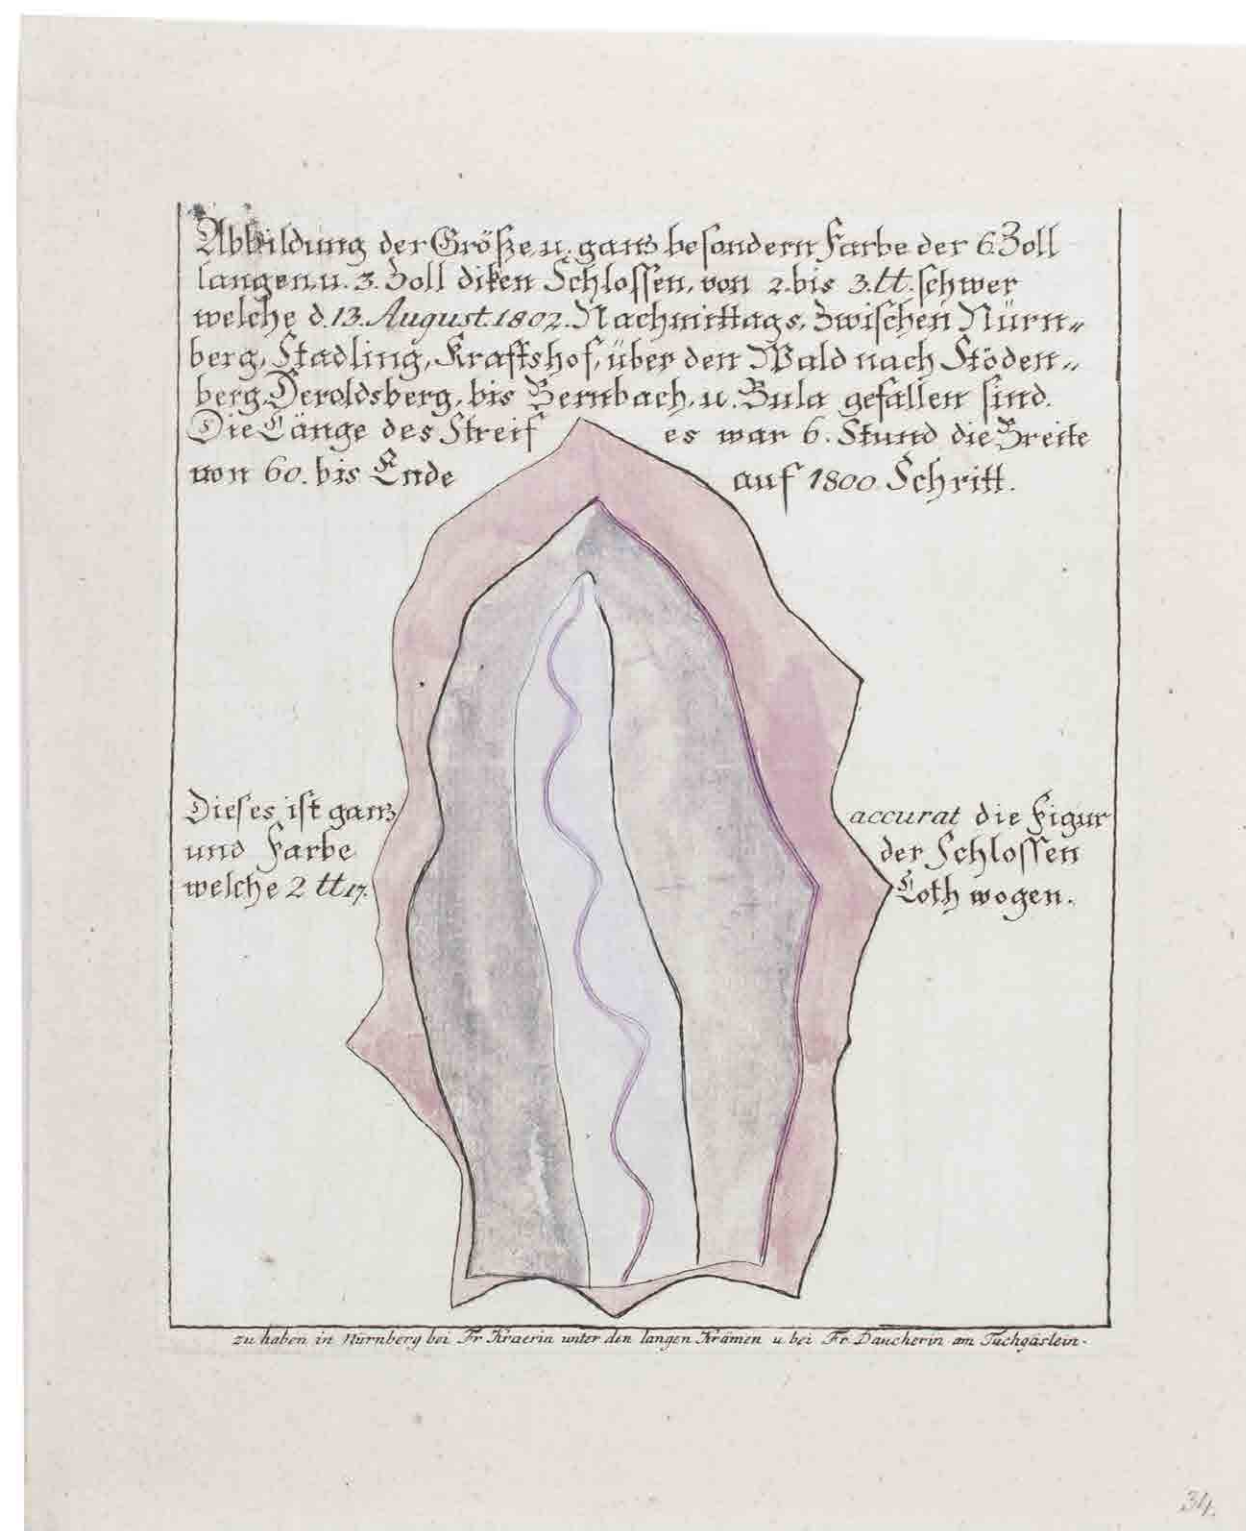 Abbildung der Größe, u. ganz besondern Farbe der 6. Zoll
langen, u. 3. Zoll diken Schlossen, von 2. bis 3. ℔. schwer
welche d. 13. August. 1802. Nachmittags, Zwischen Nürn„
berg, Stadling, Kraftshof, über den Wald nach Stöden„
berg, Heroldsberg, bis Bernbach, u. Bula gefallen sind.
Die Länge des Streif es war 6. Stund die Breite
von 60. bis Ende auf 1800 Schritt.
Dieses ist ganz accurat die Figur
und Farbe der Schlossen
welche 2 ℔ 17. Loth wogen.
zu haben in Nürnberg bei Fr Kraerin unter den langen Krämen u. bei Fr. Daucherin am Tuchgäslein.
34.